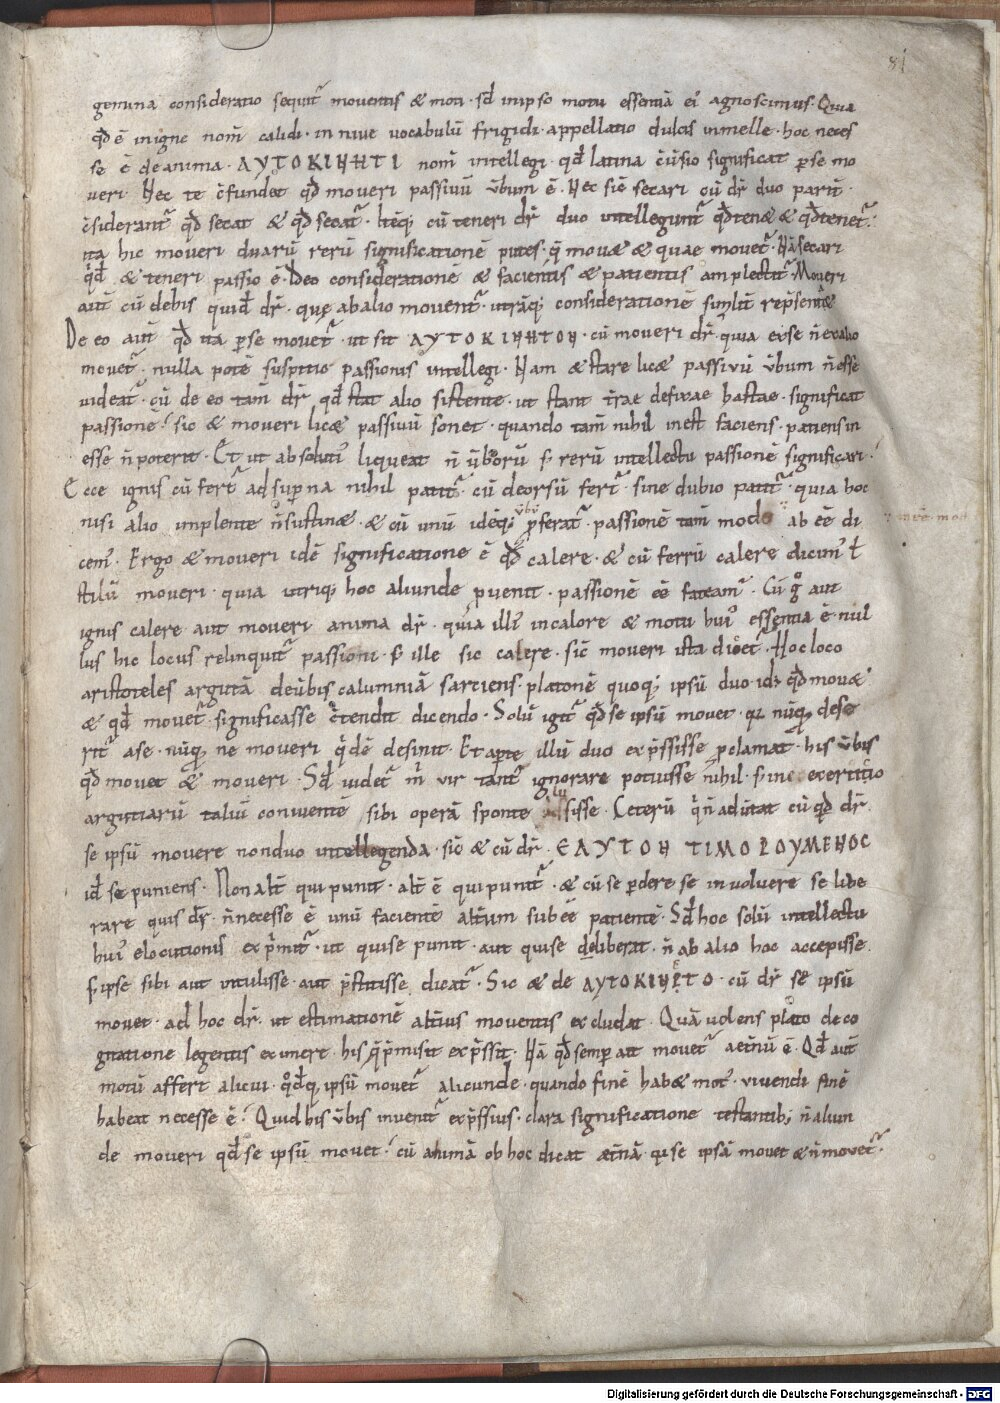 81
gemina consideratio sequit͛ mouentis & moti · sd̄ inipso motu essentiā ei᾽ agnoscimus · Quia
qd̄ ē inigne nom̄ calidi · in niue uocabulū frigidi · appellatio dulcis inmelle · hoc neces
se ē deanima · ΑΥΤΟΚΙΗΗΤΙ nom̄ intellegi · qd̄ latina c̄uersio significat p̱se mo
ueri · Nec te c̄fundet qd̄ moueri passiuū ūbum ē · Nec sic̄ secari cū dr̄ duo parit͛ ·
c̄siderant͛ qd̄ secat & qd̄ secat͛ · Itēq; cū teneri dr̄ duo intellegunt͛ qd̄ten& & qd̄tenet͛ :
ita hic moueri duarū rerū significationē putes · q̄ mou& & quae mouet͛ · Nā secari
q̄d̄ & teneri passio ē · Deo considerationē & facientis & patientis amplectit͛ · Moueri
aut̄ cū debis quid̄ dr̄ · quę abalio mouent͛ · utrāq; considerationē similit̄ rep̄sent&
De eo aut̄ qd̄ ita p̱se mouet͛ · ut sit ΑΥΤΟΚΙΗΗΤΟΗ · cū moueri dr̄ · quia exse n̄ exalio
mouet͛ · nulla potē suspitio passionis intellegi · Nam & stare lic& passiuū ūbum n̄ esse
uideat͛ · cū de eo tam̄ dr̄ qd̄ stat alio sistente · ut stant t̄rae defixae hastae · significat
passionē · sic & moueri lic& passiuū sonet · quando tam̄ nihil inest faciens · patiensin
esse n̄ poterit · Et ut absoluti᾽ liqueat n̄ ūborū s; rerū intellectu passionē significari ·
Ecce ignis cū fert͛ ad sup̱na nihil patit͛ · cū deorsū fert͛ · sine dubio patit͛ · quia hoc
nisi alio inplente n̄ sustin& · & cū unū idēq; ūbū p̱ferat͛ · passionē tam̄ modo ab eē di
cem᾽ · Ergo & moueri idē significatione ē qd̄ calere · & cū ferrū calere dicim᾽ ł
stilū moueri · quia utriq; hoc aliunde puenit · passionē eē fateam͛ · Cū g̊ aut
ignis calere aut moueri anima dr̄ · quia illi᾽ incalore & motu hui᾽ essentia ē · nul
lus hic locus relinquit͛ passioni · s; ille sic calere · sic̄ moueri ista dicet͛ · Hoc loco
aristoteles argutā deūbis calumniā sartiens · platonē quoq; ipsū duo id ÷ qd̄ mou&
& qd̄ mouet͛ significasse c̄tendit dicendo · Solū igit͛ qd̄ se ipsū mouet · q̱ nūq̱ dese
rit͛ a se · nūq̱ ne moueri q̄dē desinit · Et aperte illū duo exp̄ssisse p̱clamat · his ūbis
qd̄ mouet & moueri · Sd̄ uidet͛ m̄ uir tant᾽ ignorare potuisse nihil · s; in exercitio
argutiarū taliū conniuentē sibi operā sponte lusisse · Ceterū q̄n̄ aduertat cū qd̄ dr̄
se ipsū mouere non duo intellegenda · sic̄ & cū dr̄ · ΕΑΥΤΟΗ ΤΙΜΟΡΟΥΜΕΗΟC
id̄ se puniens · Non alt̄ qui punit · alt̄ ē qui punit͛ · & cū se p̱dere se inuoluere se libe
rare quis dr̄ · n̄ necesse ē unū facientē alterum subeē patientē · Sd̄ hoc solū intellectu
hui᾽ elocutionis exp̄mit͛ · ut quise punit · aut quise deliberat · n̄ ab alio hoc accepisse
s; ipse sibi aut intulisse · aut p̄stitisse dicat͛ · Sic & de ΑΥΤΟΚΙΗΕΤΟ · cū dr̄ se ipsū
mouet · ad hoc dr̄ · ut estimationē alterius mouentis excludat · Quā uolens plato de co
gitatione legentis eximere · his q̄ p̄misit exp̄ssit · Nā qd̄ semp̱ ait mouet͛ aet̄nū ē · Qd̄ aut̄
motū affert alicui · q̊dq; ipsū mouet͛ alicunde · quando finē hab& mot᾽ · uiuendi finē
habeat necesse ē · Quid his ūbis inuenit͛ exp̄ssius · clara significatione testantib; n̄ aliun
de moueri qd̄ se ipsū mouet · cū animā ob hoc dicat aet̄nā · qi se ipsā mouet & n̄ mouet͛ ·
Digitalisierung gefördert durch die Deutsche Forschungsgemeinschaft - DFG